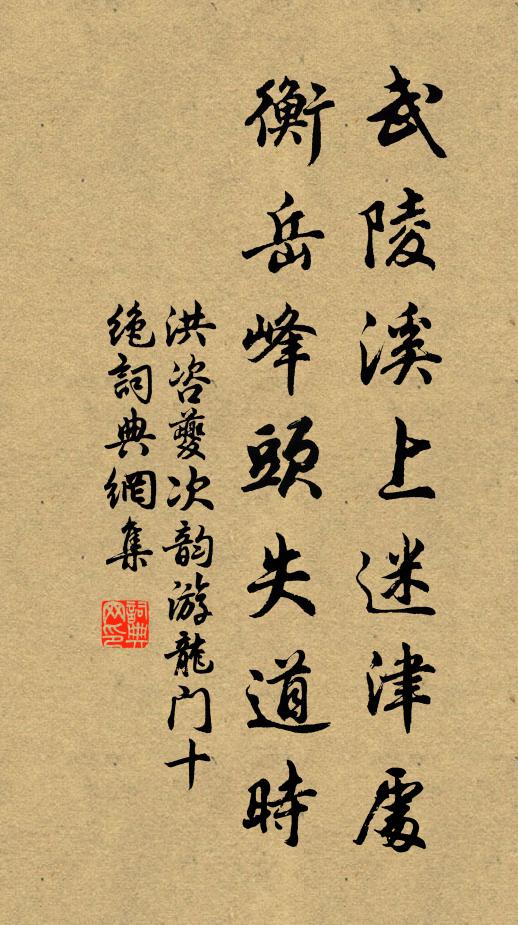 武陵溪上迷津處
衡岳峰頭失道時
洪咨夔次韵游龍门十
绝詞典網集
詞典
网印